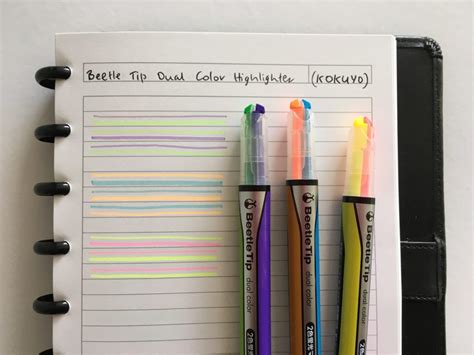 Beetle Tip Dual Color Highlighter (KOKUYO)
BeetleTip dual color 2色蛍光
BeetleTip dual color 2色蛍光
BeetleTip dual color 2色蛍光